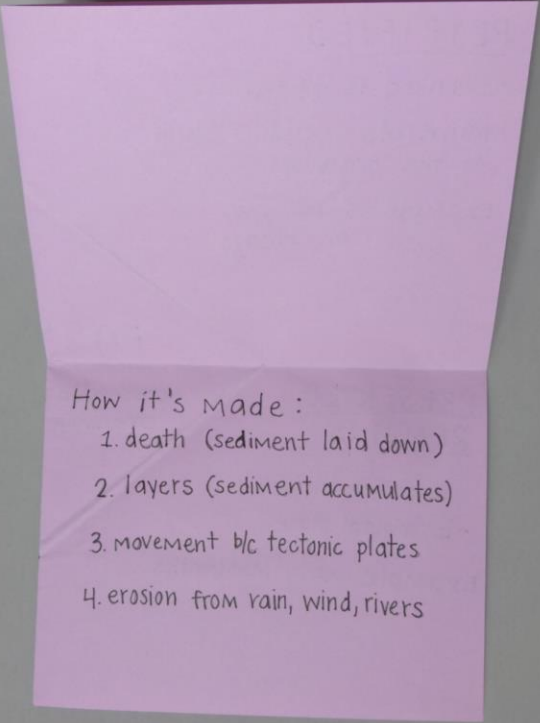 How it's made:
1. death (sediment laid down)
2. layers (sediment accumulates)
3. movement b/c tectonic plates
4. erosion from rain, wind, rivers